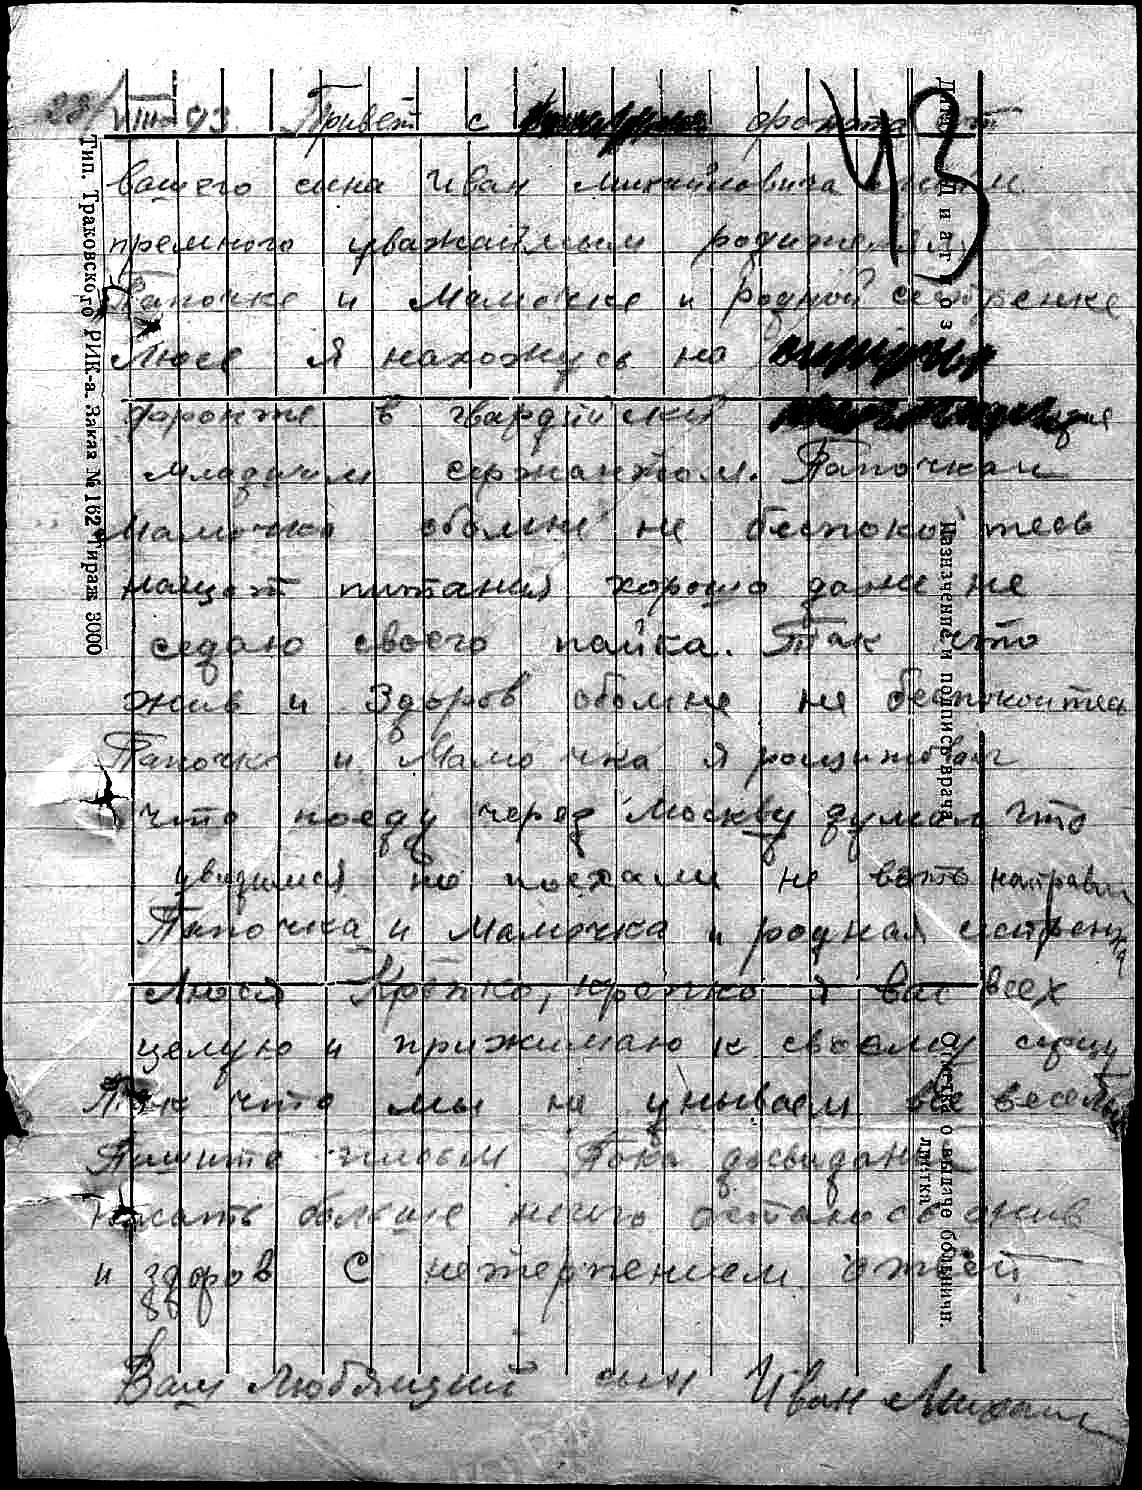 28/VIII-43 Привет с фронта от
вашего сына Иван Михайловича
премного уважаймым родителям
Папочке и Мамочке и родной сестренке
Люсе Я нахожусь на
фронте в гвардейской
младшим сержантом. Папочка и
Мамочка обомне не беспокойтесь
нащот питания хорошо даже не
седаю своего пайка. Так что
жив и Здоров обомне не беспокоитесь
Папочка и Мамочка я рощитовал
что поеду через Москву думал что
увидимся но поехали не вато направл
Папочка и Мамочка и родная сестренка
Люся Крепко, крепко я вас всех
целую и прижимаю к своему серцу
Так что мы не унываем все веселы
Пишите письма Пока досвидания
писать больше нечего остаюсь жив
и здоров С нетерпением
Ваш Любящий сын Иван Михай
43
Тип. Траковского РИК-а. Заказ № 162 Тираж 3000
Диагноз
Назначение и подпись врача
Отметка о выдаче больничн.
листка